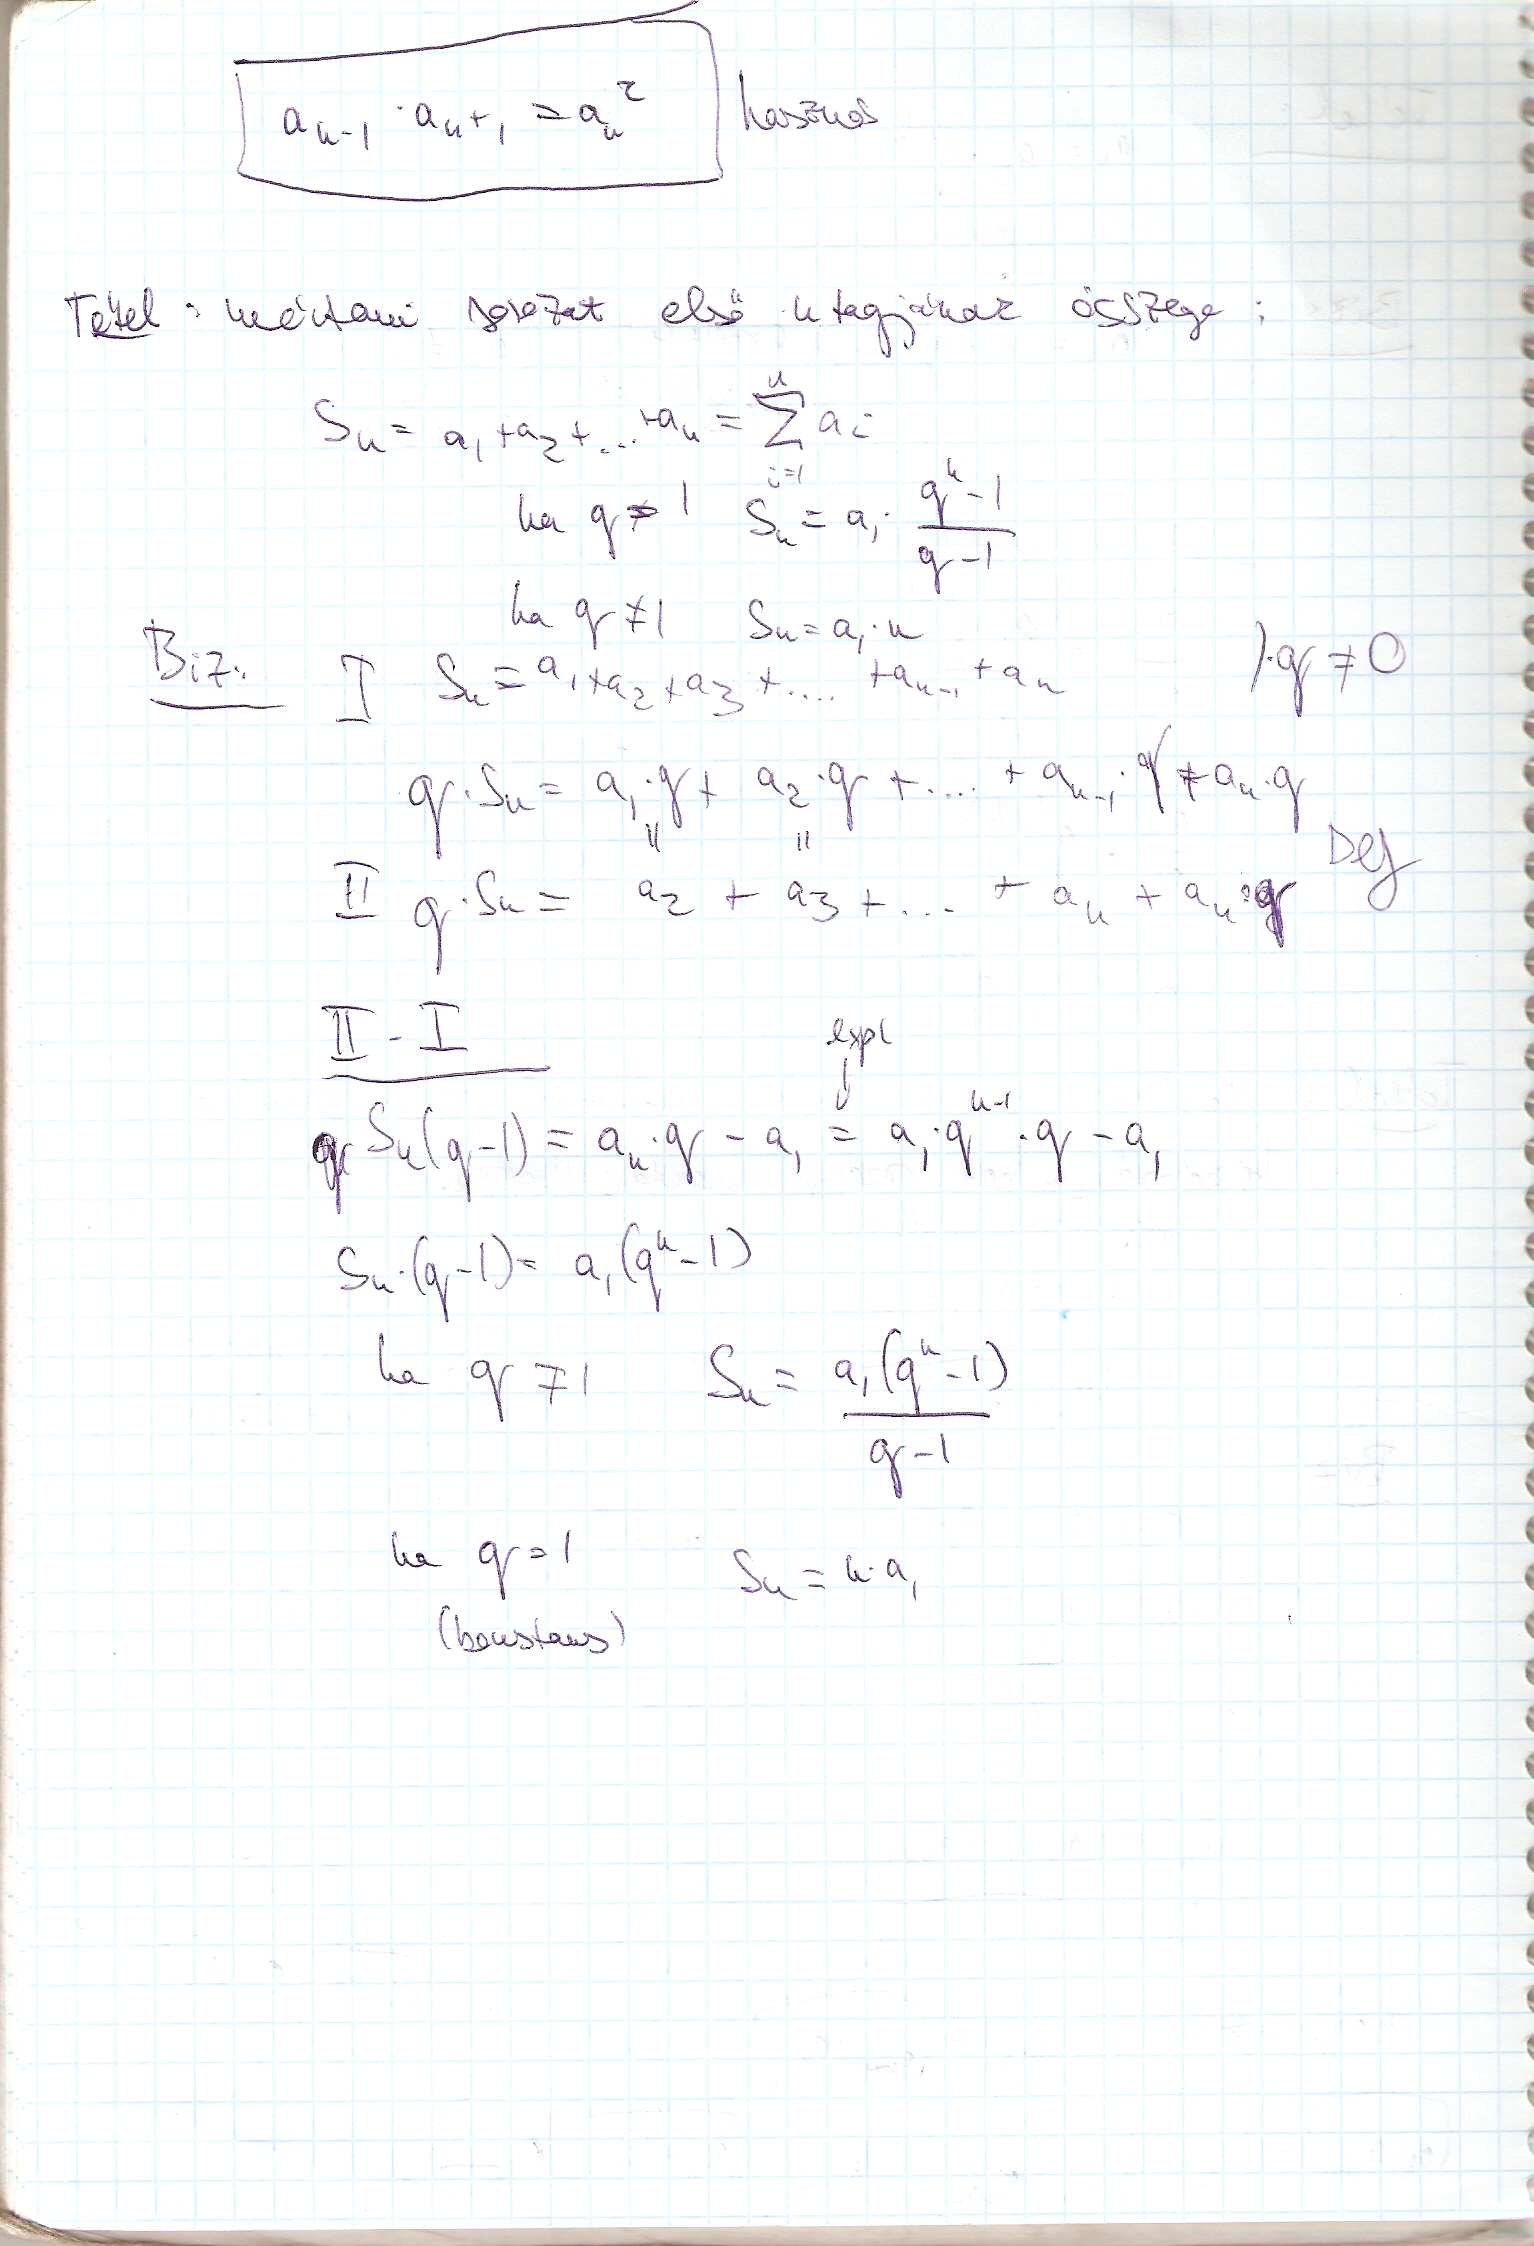 aₙ₋₁ · aₙ₊₁ = aₙ² hasznos
Tétel: mértani sorozat első n tagjának összege:
Sₙ = a₁ + a₂ + ... + aₙ = ∑ⁿᵢ₌₁ aᵢ
ha q ≠ 1 Sₙ = a₁ · (qⁿ - 1)/(q - 1)
ha q ≠ 1 Sₙ = a₁ · n
Biz. I Sₙ = a₁ + a₂ + a₃ + .... + aₙ₋₁ + aₙ /·q ≠ 0
q · Sₙ = a₁ · q + a₂ · q + .... + aₙ₋₁ · q + aₙ · q
|| ||
Def
II q · Sₙ = a₂ + a₃ + ... + aₙ + aₙ · q
II - I
expl
↓
Sₙ(q-1) = aₙ · q - a₁ = a₁ · qⁿ⁻¹ · q - a₁
Sₙ · (q-1) = a₁(qⁿ - 1)
ha q ≠ 1 Sₙ = a₁(qⁿ - 1)/(q - 1)
ha q = 1 Sₙ = n · a₁
(konstans)